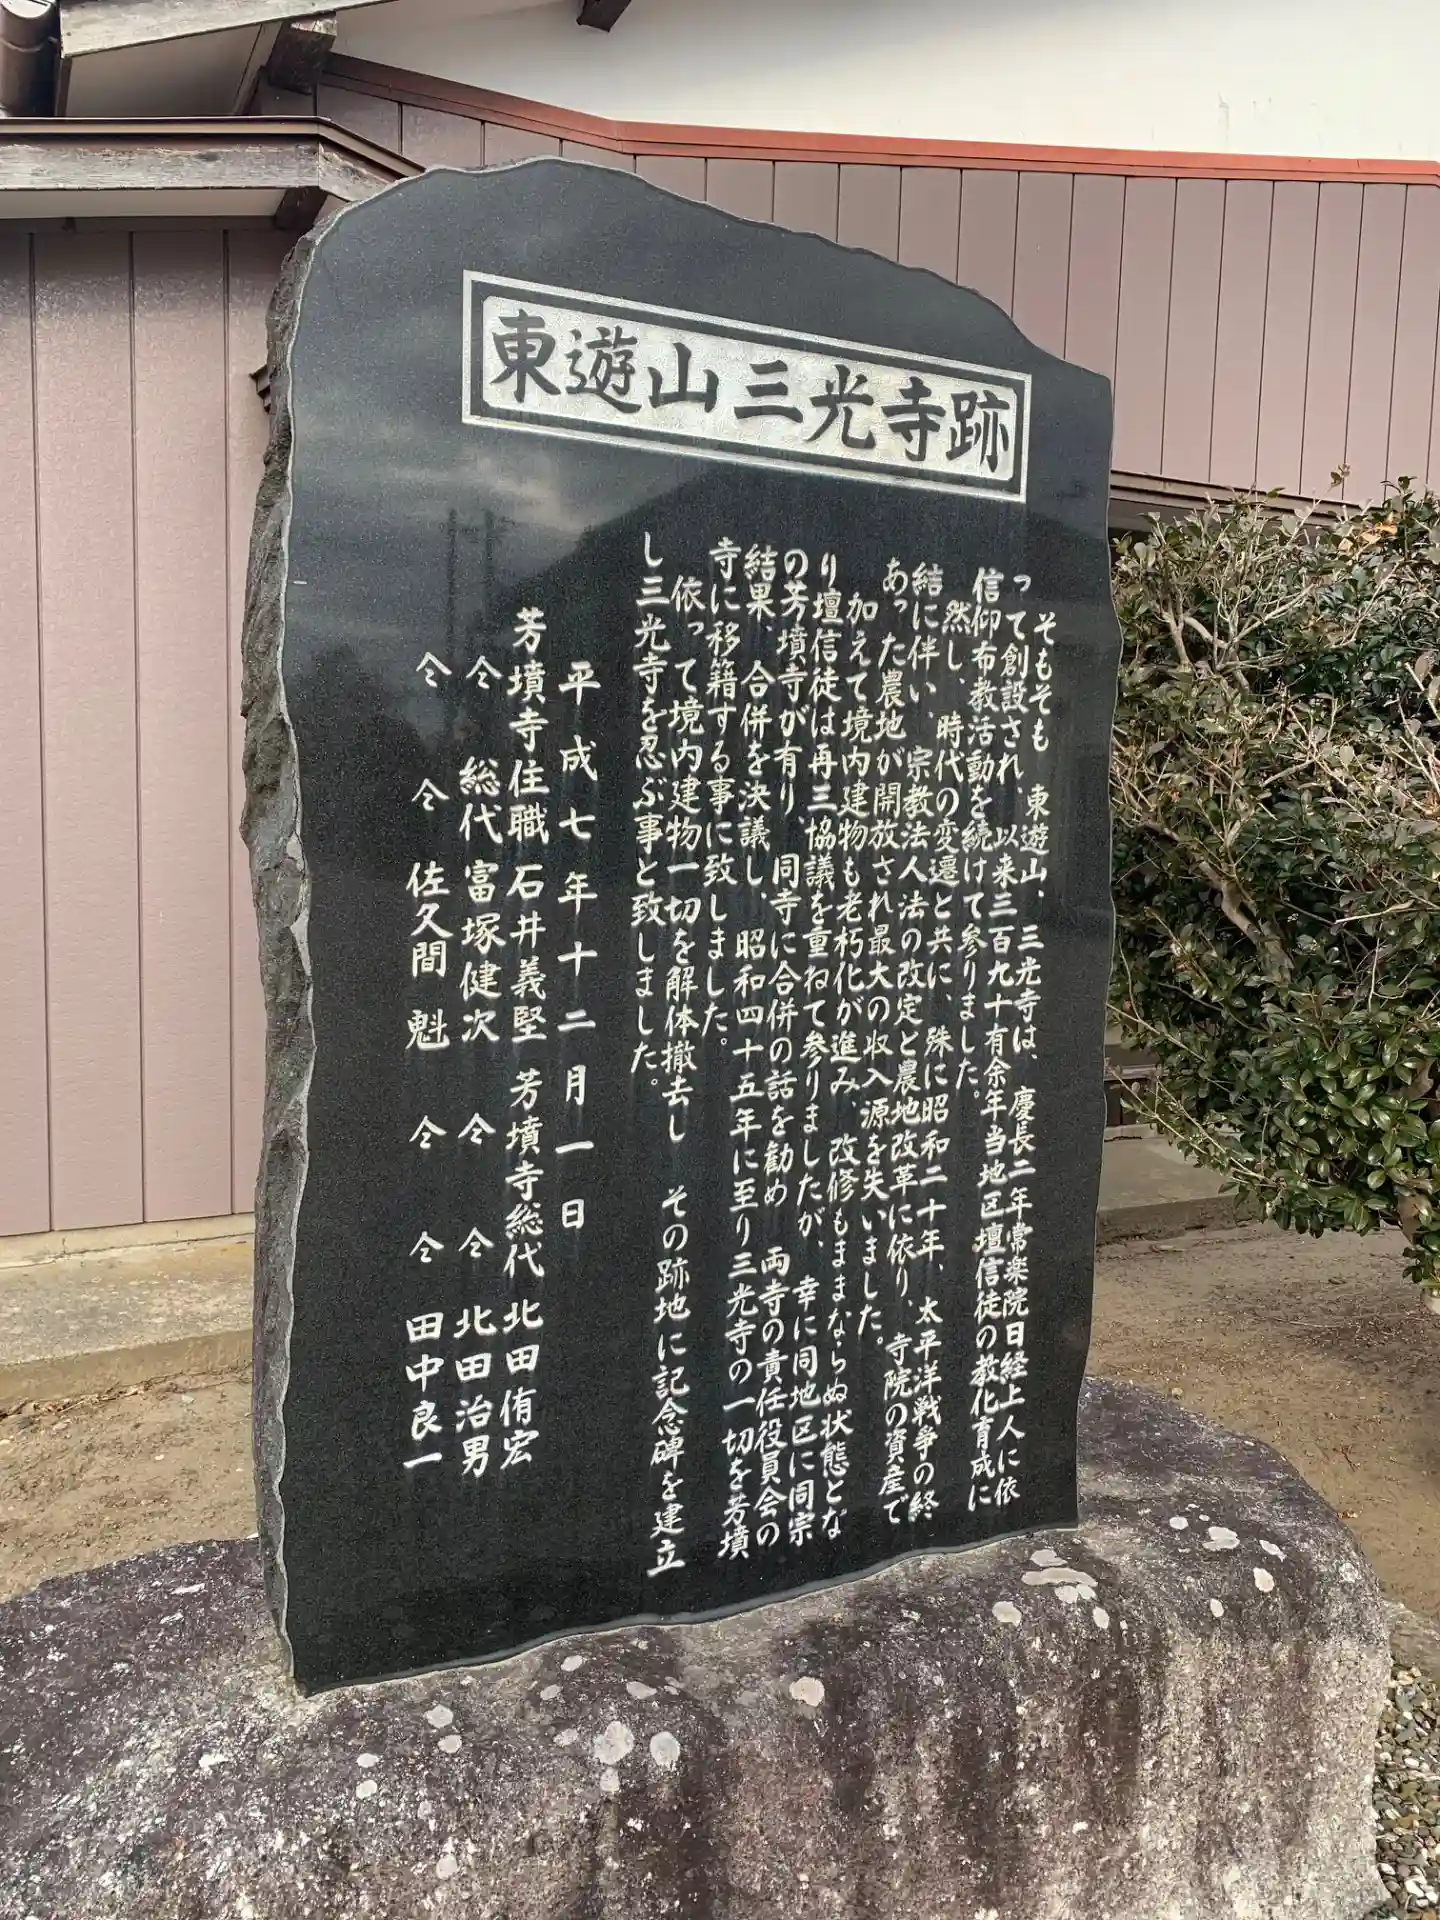 東遊山三光寺跡
そもそも　東遊山、三光寺は、慶長二年常楽院日経上人に依
って創設され、以来三百九十有余年当地区壇信徒の教化育成に
信仰布教活動を続けて参りました。
然し、時代の変遷と共に、殊に昭和二十年、太平洋戦争の終
結に伴い、宗教法人法の改定と農地改革に依り、寺院の資産で
あった農地が開放され最大の収入源を失いました。
加えて境内建物も老朽化が進み、改修もままならぬ状態とな
り壇信徒は再三協議を重ねて参りましたが、幸に同地区に同宗
の芳墳寺が有り、同寺に合併の話を勧め　両寺の責任役員会の
結果、合併を決議し、昭和四十五年に至り三光寺の一切を芳墳
寺に移籍する事に致しました。
依って境内建物一切を解体撤去し　その跡地に記念碑を建立
し三光寺を忍ぶ事と致しました。
平成七年十二月一日
芳墳寺住職　石井義堅　芳墳寺総代　北田侑宏
仝　総代　富塚健次　仝　仝　北田治男
仝　仝　佐久間　魁　仝　仝　田中良一